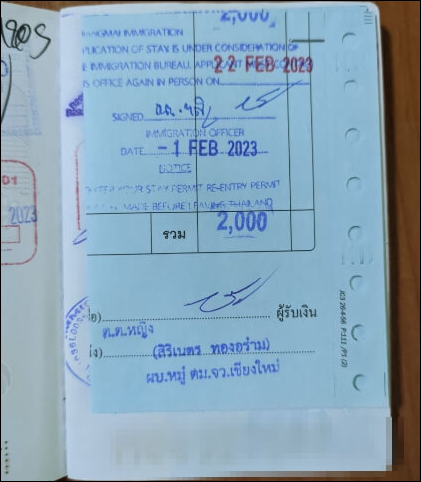 2,000
ANGMAI IMMIGRATION
PLICATION OF STAY IS UNDER CONSIDERATION OF
E IMMIGRATION BUREAU. APPLICANT
22 FEB 2023
IS OFFICE AGAIN IN PERSON ON
SIGNED
IMMIGRATION OFFICER
DATE - 1 FEB 2023
NOTICE
YOUR STAY PERMIT RE-ENTRY PERMIT
MADE BEFORE LEAVING THAILAND
01
2023
รวม 2,000
ผู้รับเงิน
ต.ต.หญิง
(สิริเนตร ทองอร่าม)
ผบ.หมู่ ตม.จว.เชียงใหม่